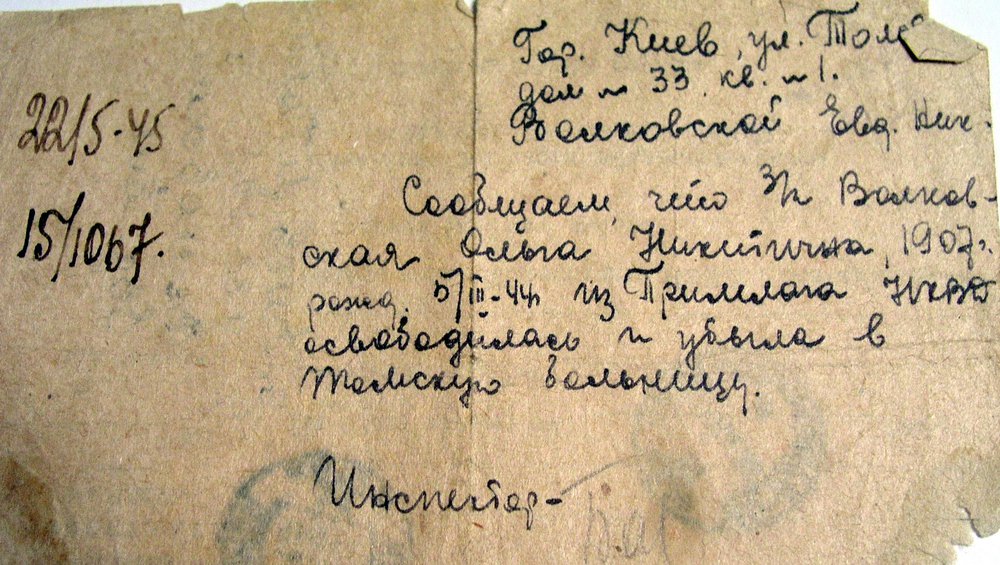 Гор. Киев, ул. Толс
дом № 33 кв. № 1.
22/5-45
Волковской Евд. Ник-
Сообщаем, что з/к Волков-
15/1067.
ская Ольга Никитична, 1907 г.
рожд. 5/III-44г из НКВД
освободилась и убыла в
Томскую больницу.
Инспектор-